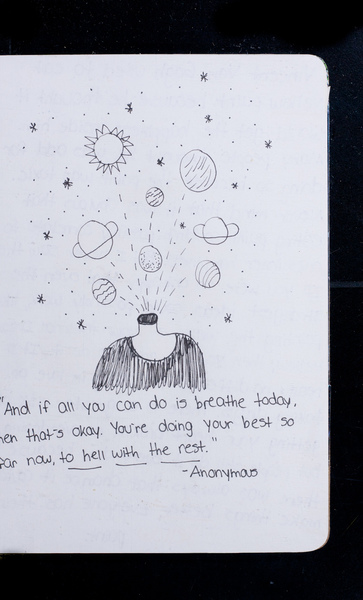 "And if all you can do is breathe today,
then that's okay. You're doing your best so
far now, to hell with the rest."
-Anonymous